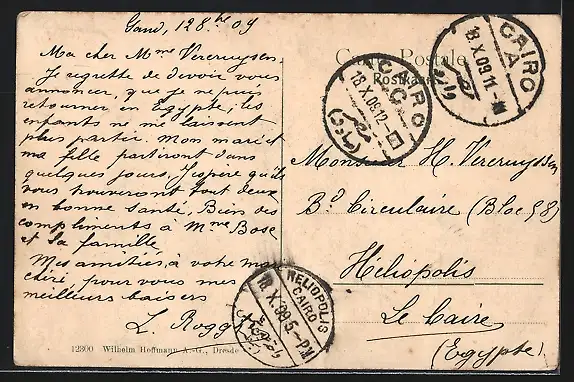 Gand, 12 8bre 09
Ma cher Mme Vercruyssen.
Je regrette de devoir vous
annoncer, que je ne puis
retourner en Egypte, les
enfants ne me laissent
plus partir. Mon mari et
ma fille partiront dans
quelques jours, J'espere qu'ils
vous trouveront tout deux
en bonne santé, Bien des
compliments à Mme Bose
et sa famille
Mes amitiées, à votre ma
chéri, pour vous mes
meilleurs baisers
L. Rogg
12300 Wilhelm Hoffmann A.-G., Dresde
Carte Postale
Postkarte
CAIRO
A
18.X.09.11-AM
CAIRO
18.X.09.12-
HELIOPOLIS
CAIRO
18.X.09 5-PM
Monsieur H. Vercruyssen
Bd Circulaire (Bloc 58)
Héliopolis
Le Caire
(Egypte)